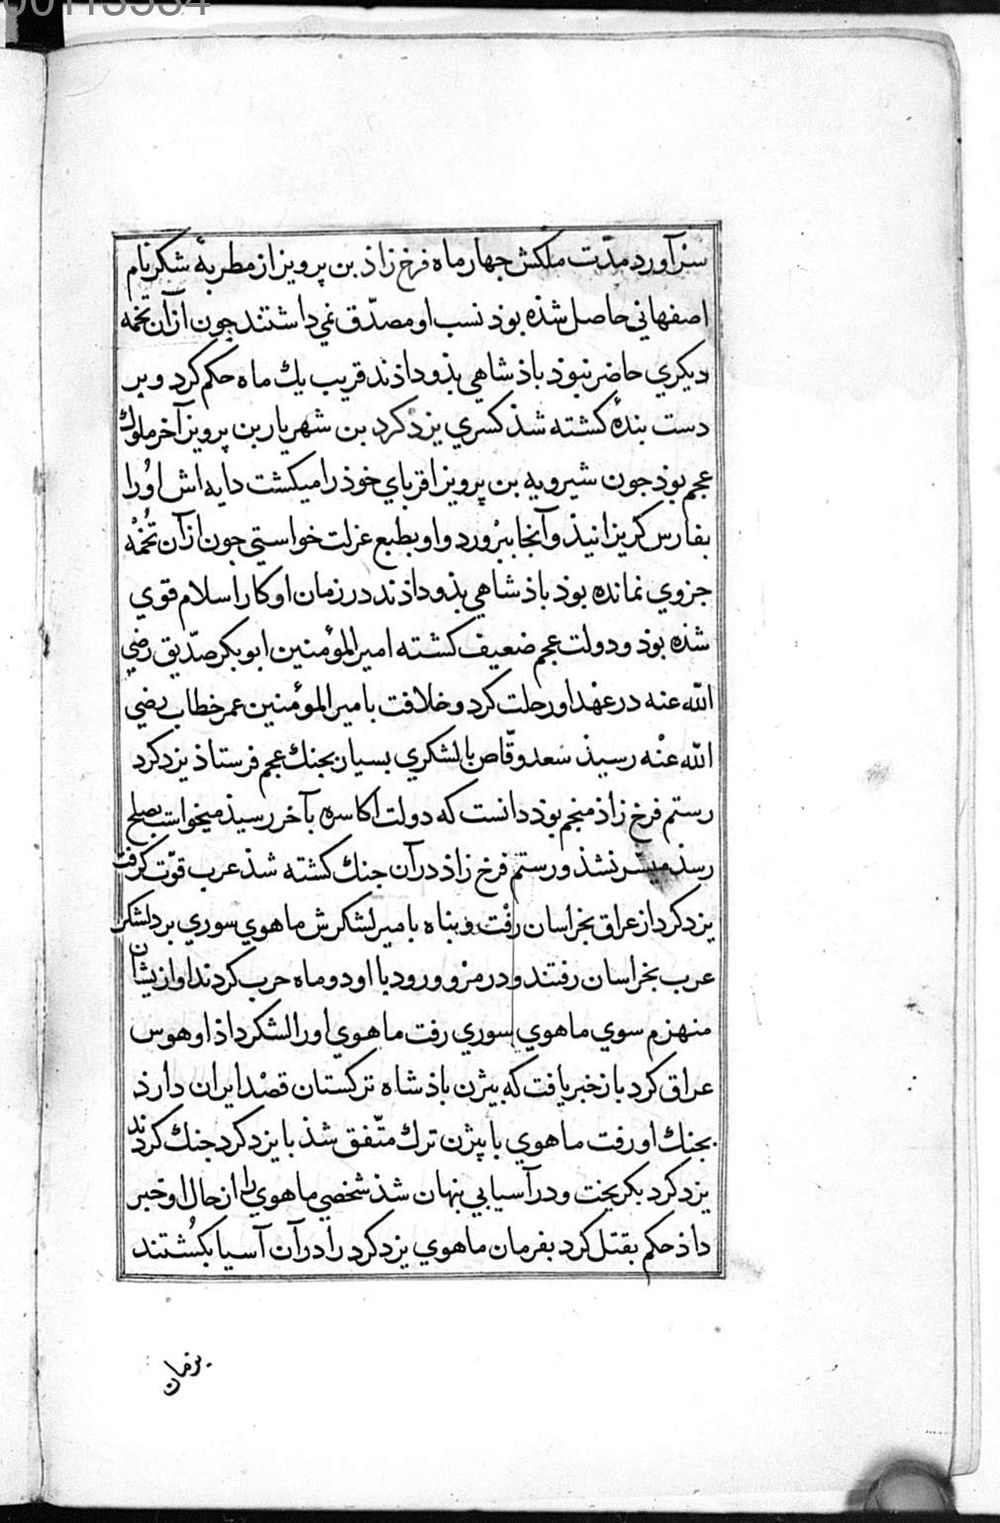 00113334
سر آورد مدّت ملكش جهار ماه فرخ زاذ بن پرويز از مطربهٔ شكر نام
اصفهاني حاصل شذه بوذ نسب او مصدّق نمي داشتند جون از آن تخمه
ديكري حاضر نبوذ باذشاهي بذو داذند قريب يك ماه حكم كرد و بر
دست بندهٔ كشته شذ كسري يزدكرد بن شهريار بن پرويز آخر ملوك
عجم بوذ جون شيرويه بن پرويز اقرباي خوذ را ميكشت دايه اش اورا
بفارس كريزانيذ و آنجا بپرورد و او بطبع عزلت خواستي جون از آن تخمه
جزوي نمانده بوذ باذشاهي بذو داذند در زمان او كار اسلام قوي
شذه بوذ و دولت عجم ضعيف كشته امير المؤمنين ابو بكر صدّيق رضي
الله عنه در عهد او رحلت كرد و خلافت با مير المؤمنين عمر خطاب رضي
الله عنه رسيذ سعد وقّاص با لشكري بسيار بجنك عجم فرستاذ يزدكرد
رستم فرخ زاذ منجم بوذ دانست كه دولت اكاسره بآخر رسيذ ميخواست بصلح
رسذ ميسّر نشذ و رستم فرخ زاذ در آن جنك كشته شذ عرب قوّت كرفت
يزدكرد از عراق بخراسان رفت و بناه با مير لشكرش ماهوي سوري برد لشكر
عرب بخراسان رفتند و در مرو و رود با او دو ماه حرب كردند او ازيشان
منهزم سوي ماهوي سوري رفت ماهوي اورا لشكر داذ او هوس
عراق كرد باز خبر يافت كه بيژن باذشاه تركستان قصد ايران دارذ
بجنك او رفت ماهوي با بيژن ترك متّفق شذ با يزدكرد جنك كردند
يزدكرد بكريخت و در آسيابي بنهان شذ شخصي ماهوي را از حال او خبر
داذ حكم بقتل كرد بفرمان ماهوي يزدكرد را در آن آسيا بكشتند